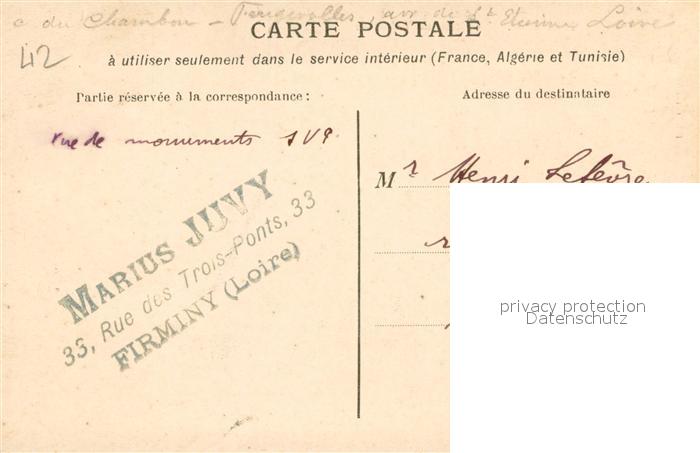 du Chambon - Feugerolles, arr. de St Etienne Loire
CARTE POSTALE
42
à utiliser seulement dans le service intérieur (France, Algérie et Tunisie)
Partie réservée à la correspondance :
Adresse du destinataire
vue de monuments SVP.
Mr Henri Lefèvre
MARIUS JUVY
33, Rue des Trois-Ponts, 33
FIRMINY (Loire)
privacy protection
Datenschutz